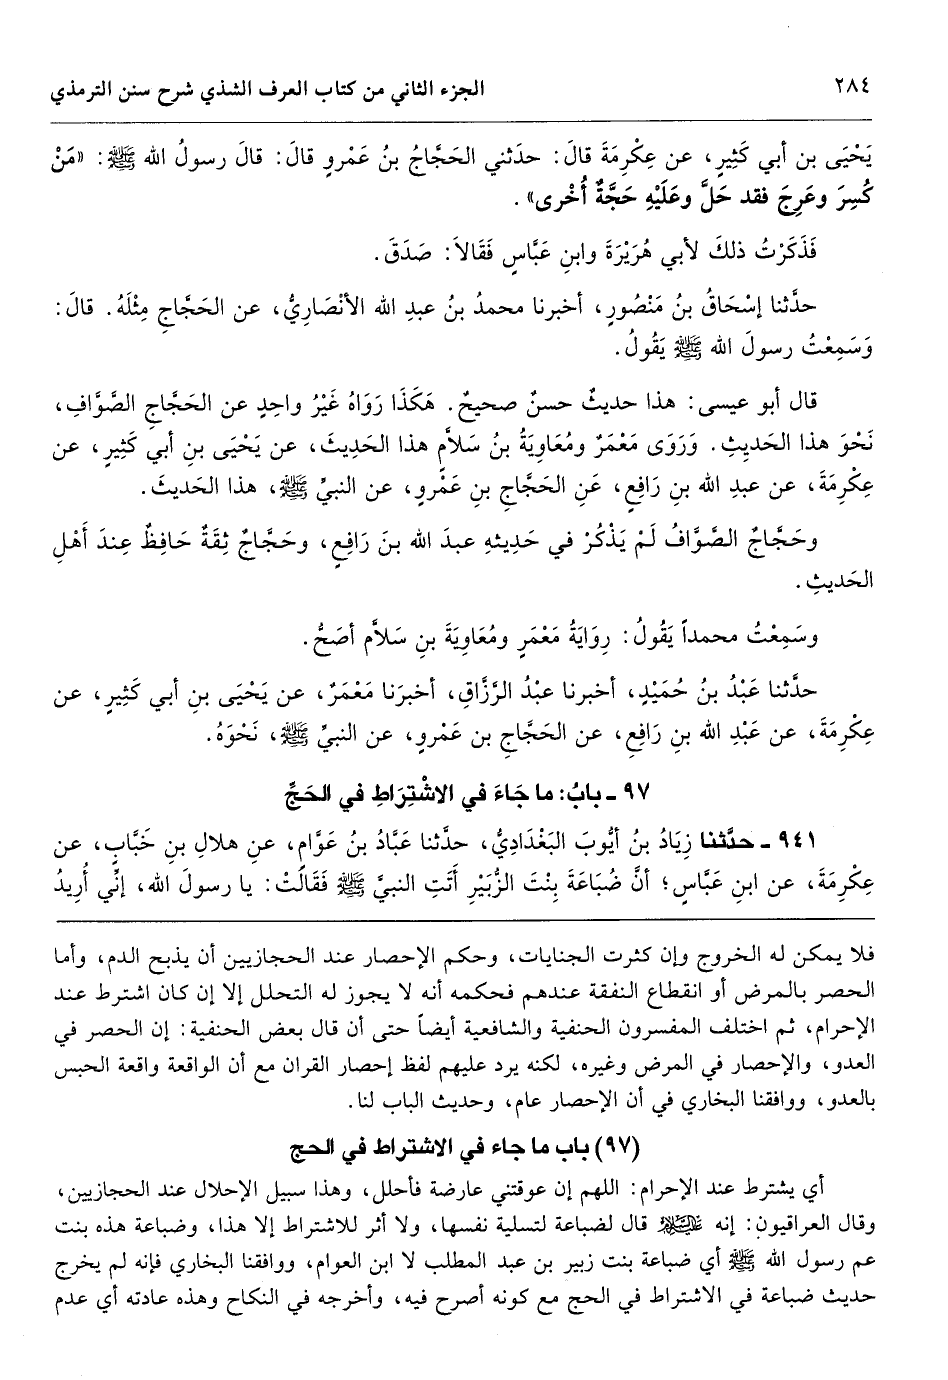 ٢٨٤
الجزء الثاني من كتاب العرف الشذي شرح سنن الترمذي
يَحْيَى بن أبي كَثِيرٍ، عن عِكْرِمَةَ قالَ: حدَثني الحَجَّاجُ بنُ عَمْروٍ قالَ: قالَ رسولُ الله ﷺ: «مَنْ
كُسِرَ وعَرِجَ فقد حَلَّ وعَلَيْهِ حَجَّةٌ أُخْرى».
فَذَكَرْتُ ذلكَ لأبي هُرَيْرَةَ وابنِ عَبَّاسٍ فَقَالاَ: صَدَقَ.
حدَّثنا إسْحَاقُ بنُ مَنْصُورٍ، أخبرنا محمدُ بنُ عبدِ الله الأنْصَاريُّ، عن الحَجَّاجِ مِثْلَهُ. قالَ:
وَسَمِعْتُ رسولَ الله ﷺ يَقُولُ.
قال أبو عيسى: هذا حديثٌ حسنٌ صحيحٌ. هَكَذَا رَوَاهُ غَيْرُ واحِدٍ عن الحَجَّاجِ الصَّوَّافِ،
نَحْوَ هذا الحَديثِ. وَرَوَى مَعْمَرٌ ومُعَاوِيَةُ بنُ سَلاَّمٍ هذا الحَدِيثَ، عن يَحْيَى بنِ أبي كَثِيرٍ، عن
عِكْرِمَةَ، عن عبدِ الله بنِ رَافِعٍ، عَنِ الحَجَّاجِ بنِ عَمْروٍ، عن النبيِّ ﷺ، هذا الحَديثَ.
وحَجَّاجٌ الصَّوَّافُ لَمْ يَذْكُرْ في حَدِيثهِ عبدَ الله بنَ رَافِعٍ، وحَجَّاجٌ ثِقَةٌ حَافِظٌ عِندَ أَهْلِ
الحَديثِ.
وسَمِعْتُ محمداً يَقُولُ: رِوَايَةُ مَعْمَرٍ ومُعَاوِيَةَ بنِ سَلاَّمٍ أصَحُّ.
حدَّثنا عَبْدُ بنُ حُمَيْدٍ، أخبرنا عبْدُ الرَّزَّاقِ، أخبرَنا مَعْمَرٌ، عن يَحْيَى بنِ أبي كَثِيرٍ، عن
عِكْرِمَةَ، عن عَبْدِ الله بنِ رَافِعٍ، عن الحَجَّاجِ بن عَمْروٍ، عن النبيِّ ﷺ، نَحْوَهُ.
٩٧ - بابُ: ما جَاءَ في الاشْتِرَاطِ في الحَجِّ
٩٤١ - حدَّثنا زِيَادُ بنُ أيُّوبَ البَغْدَادِيُّ، حدَّثنا عَبَّادُ بنُ عَوَّامٍ، عن هلالِ بنِ خَبَّابٍ، عن
عِكْرِمَةَ، عن ابنِ عَبَّاسٍ؛ أنَّ ضُبَاعَةَ بِنْتَ الزُّبَيْرِ أَتَتِ النبيَّ ﷺ فَقَالَتْ: يا رسولَ الله، إنِّي أُرِيدُ
فلا يمكن له الخروج وإن كثرت الجنايات، وحكم الإحصار عند الحجازيين أن يذبح الدم، وأما
الحصر بالمرض أو انقطاع النفقة عندهم فحكمه أنه لا يجوز له التحلل إلا إن كان اشترط عند
الإحرام، ثم اختلف المفسرون الحنفية والشافعية أيضاً حتى أن قال بعض الحنفية: إن الحصر في
العدو، والإحصار في المرض وغيره، لكنه يرد عليهم لفظ إحصار القران مع أن الواقعة واقعة الحبس
بالعدو، ووافقنا البخاري في أن الإحصار عام، وحديث الباب لنا.
(٩٧) باب ما جاء في الاشتراط في الحج
أي يشترط عند الإحرام: اللهم إن عوقتني عارضة فأحلل، وهذا سبيل الإحلال عند الحجازيين،
وقال العراقيون: إنه عليه السلام قال لضباعة لتسلية نفسها، ولا أثر للاشتراط إلا هذا، وضباعة هذه بنت
عم رسول الله ﷺ أي ضباعة بنت زبير بن عبد المطلب لا ابن العوام، ووافقنا البخاري فإنه لم يخرج
حديث ضباعة في الاشتراط في الحج مع كونه أصرح فيه، وأخرجه في النكاح وهذه عادته أي عدم